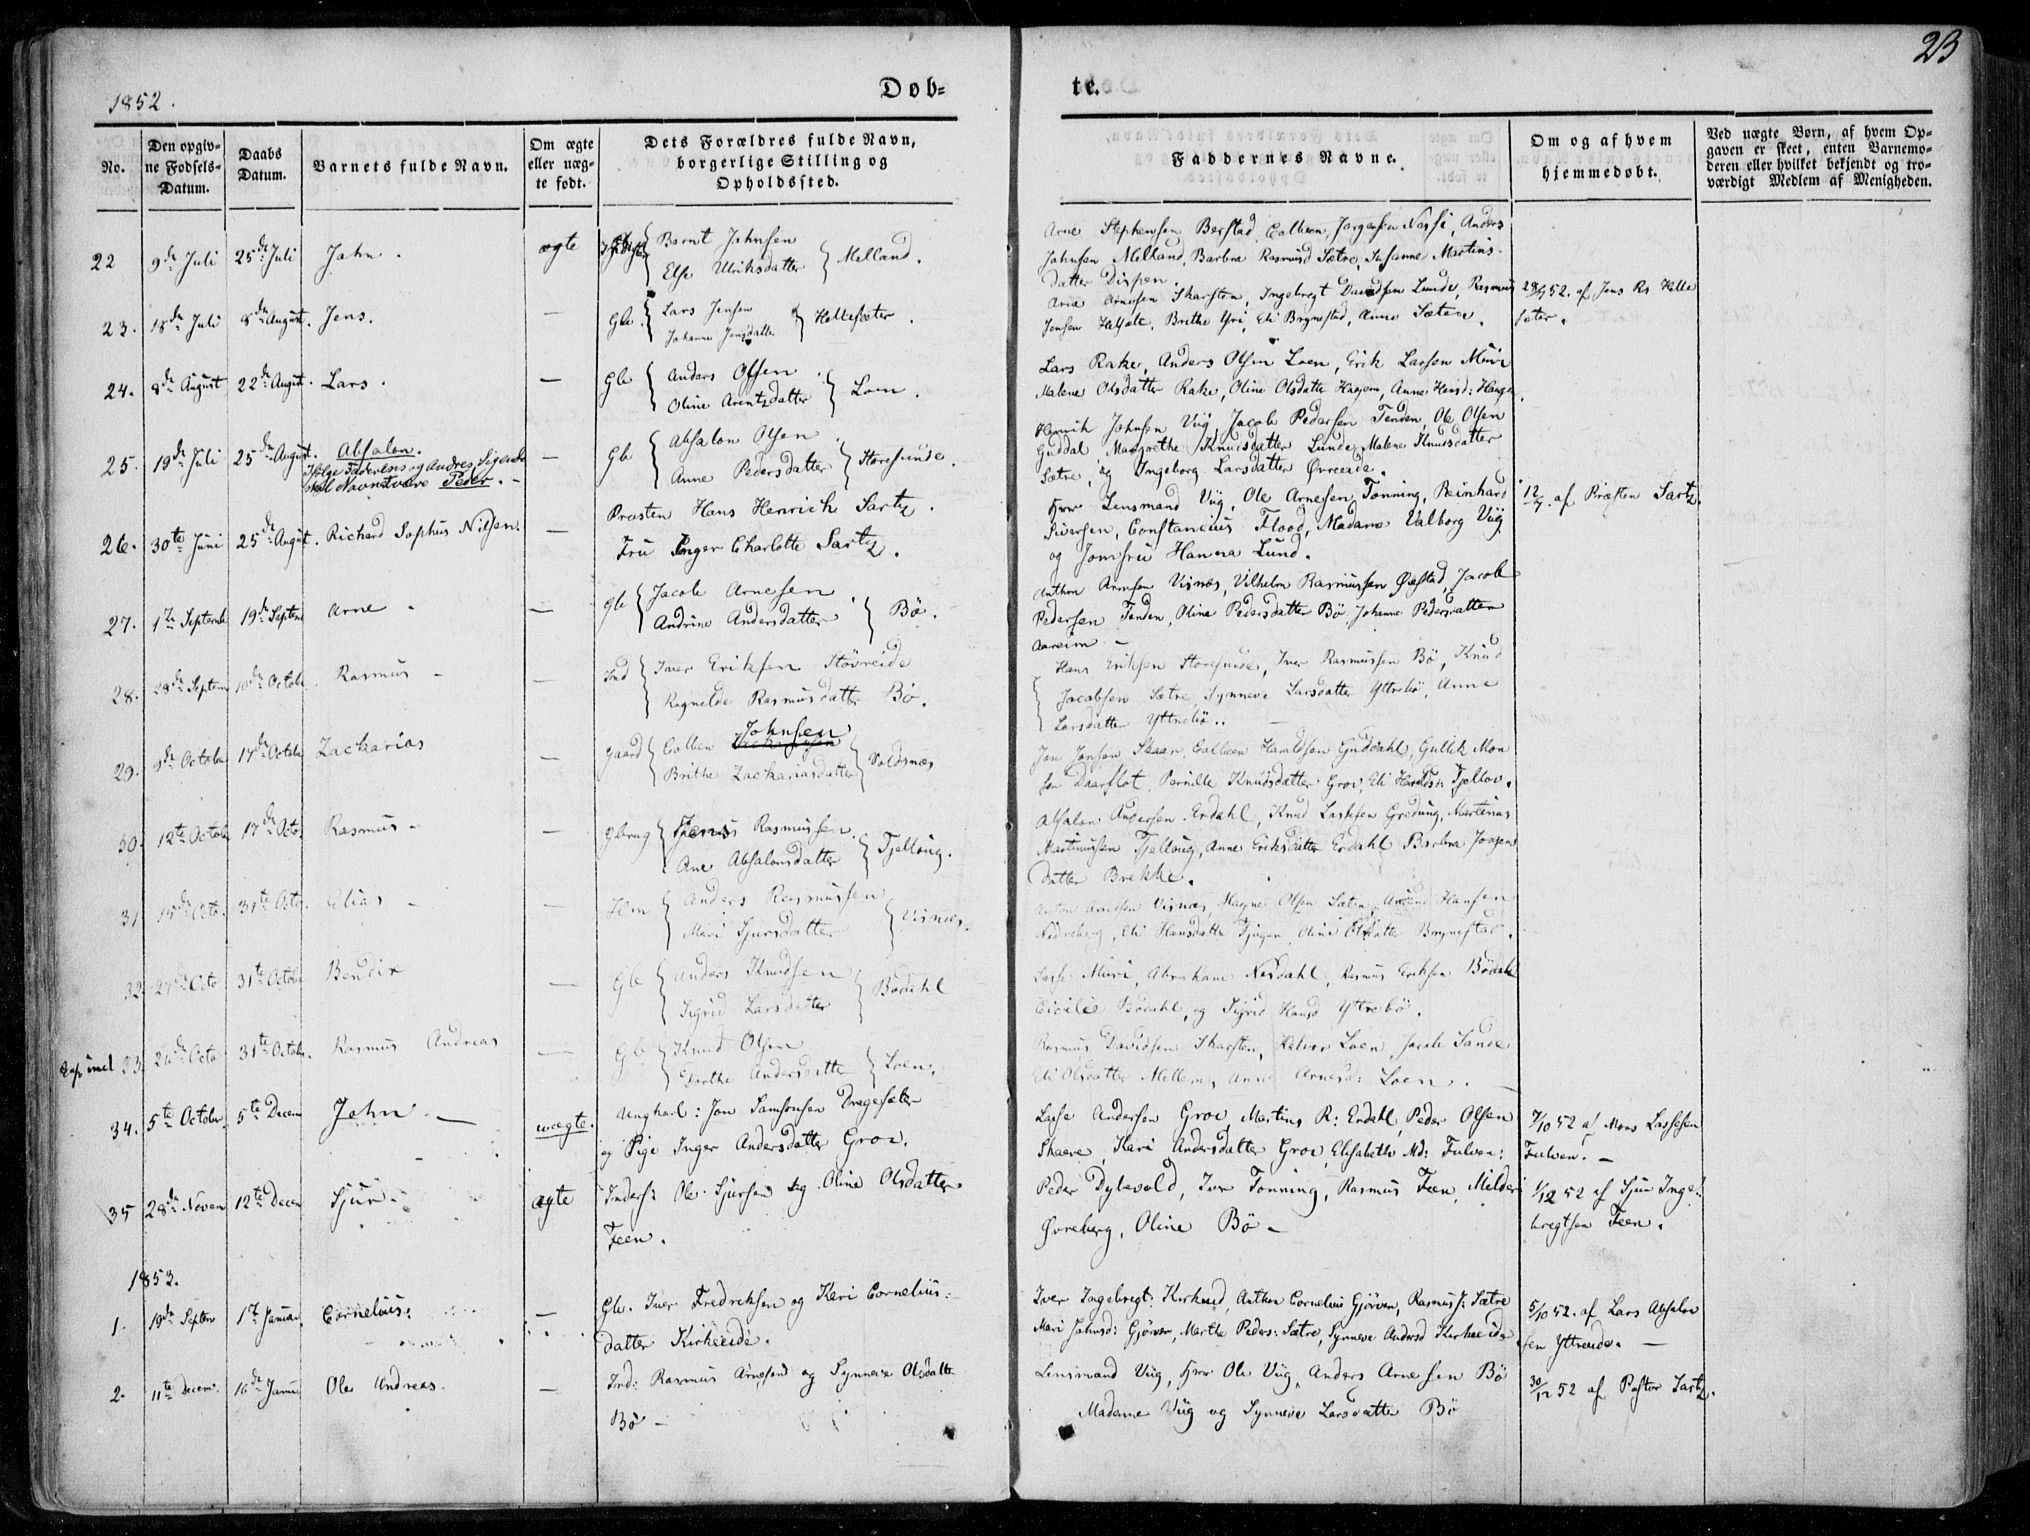 23
1852.
Døb-
te.
No.
Den opgiv-
ne Fødsels-
Datum.
Daabs
Datum.
Barnets fulde Navn.
Om ægte
eller uæg-
te født.
Dets Forældres fulde Navn,
borgerlige Stilling og
Opholdssted.
Faddernes Navne.
Om og af hvem
hjemmedøbt.
Ved uægte Børn, af hvem Op-
gaven er skeet, enten Barnemo-
deren eller hvilket bekjendt og tro-
værdigt Medlem af Menigheden.
22 9de Juli 25de Juli John. ægte Bernt Johnsen
Else Ulriksdatter Melland.
Arne Stephensen Berstad, Colbein Jørgensen, Anders
Johnsen Melland, Barbra Rasmusd Sætre, Susanne Martins-
datter
23. 18de Juli 8de August. Jens. — Gbr. Lars Jensen
Johanne Jensdatter Hellesæter.
Arnesen Skarsten, Ingebregt Davidsen Lunde, Rasmus
Jensen, Brithe Yri, Eli Brynestad, Anne Sætren.
52. af Jens Rs Helle
sæter.
24. 8de August 22de August. Lars. — Gbr Anders Olsen
Oline Arentsdatter Loen.
Lars Rake, Anders Olsen Loen, Erik Lassen Muri
Malene Olsdatter Rake, Oline Olsdatter, Anne Hansd:
25. 19de Juli 25de August. Absalon. — Gb Absalon Olsen
Ifølge Faderens og Andres Sigende
skal Navnet være Peder. —
Anne Pedersdatter Storesunde.
Henrik Johnsen Viig, Jacob Pedersen Tenden, Ole Olsen
Guddal, Margrethe Knudsdatter Lunde, Malene Knudsdatter
Sætre, og Ingeborg Larsdatter Øvreeide.
26. 30te Juni 25de August. Richard Sophus Nilsen. — Presten Hans Henrich Sartz.
Fru Inger Charlotte Sartz.
Herr Lensmand Viig, Ole Arnesen Tonning, Reinhard
Iversen, Constancius Flood, Madame Valborg Viig
og Jomfru Hanna Lund.
12/7. af Præsten Sartz.
27. 1te Septemb 19de Septem Arne. — Gb Jacob Arnesen.
Andrine Andersdatter Bø.
Anthon Arnesen Visnæs, Vilhelm Rasmussen, Jacob
Pedersen Tenden, Oline Pedersdatter Bø, Johanne Pedersdatter
Aareim. —
28. 28de Septem 10de Octobr. Rasmus — — Ind Iver Eriksen Støvreide
Ragnilde Rasmusdatter Bø.
Hans Eriksen Storesunde, Iver Rasmussen Bø, Knud
Jacobsen Sætre, Synneve Larsdatter Yttrebø, Anne
Larsdatter Yttrebø..
29. 9de October 17de Octobr Zacharias — Gaard Colbein Johnsen
Brithe Zachariasdatter Voldsnæs
Jon Jonsen Skaar, Colbein Haraldsen Guddahl, Gullik Mon
sen Daarflot, Pernille Knudsdatter Grov, Eli Haraldsd: Fjellov.
30. 12te Octobr 17de Octo. Rasmus — — Gbrug Jens Rasmussen
Ane Absalonsdatter Fjelloug.
Absalon Andersen Erdahl, Knud Lassesen Greding, Martinus
Martinussen Fjelloug, Anne Eriksdatter Erdahl, Barbra
datter Brekke.
31 15de Octo. 31te Octo. Elias — — Hm Anders Rasmussen
Mari Sjursdatter Visnæs.
Anton Arnesen Visnæs, Magne Olsen, Hansen
Nedreberg, Eli Hansdatter, Oline Brynestad.
32 27de Octo 31te Octobr Bendix — Gb Anders Knudsen
Sigrid Larsdatter Bødahl
Lasse Muri, Abraham Nesdahl, Rasmus Eriksen Bødahl
Cicilie Bødahl, og Sigrid Hansd Yttrebø.
33. 26de Octo 31te Octobr. Rasmus Andreas — Gb Knud Olsen
Dorthe Andersdatter Loen.
Rasmus Davidsen Skarsten, Halvor Loen, Jacob Sande
Eli Olsdatter Mellem, Anne Arnesd: Loen. —
34. 5te October 5te Decem John. — uægte. Ungkarl: Jon Samsonsen Dragesæter
og Pige Inger Andersdatter Grov.
Lasse Andersen Grov, Martins R: Erdahl, Peder Olsen
Skaare, Kari Andersdatter Grov, Elisabeth Md: Fulven:
7/10 52 af Mons Lassesen
Fulven. —
35 28de Novem 12te Decem Sjur. — ægte Inderst: Ole Sjursen og Oline Olsdatter
Feen.
Peder Dylevold, Iver Tonning, Rasmus Feen, Mildri
Øvreberg, Oline Bø —
1/12 52 af Sjur Inge-
bregtsen Feen.
1853.
1. 19de Septbr 1te Januar. Cornelius: — Gbr. Iver Fredriksen og Kari Cornelius:
datter Kirkeeide.
Iver Ingebregt: Kirkeeid, Anthon Cornelius Gjørven, Rasmus J: Sætre
Mari Johnsd: Gjørven, Marthe Peders: Sætre, Synneve Andersd Kirkeeide
5/10 52. af Lars Absalon
sen Yttreeide. —
2. 11te Decem. 16de Janu Ole Andreas. — Ind: Rasmus Arnesen og Synneve Olsdatter
Bø —
Lensmand Viig, Herr Ole Viig, Anders Arnesen Bø
Madame Viig og Synneve Larsdatter Bø
30/12 52 af Pastor Sartz.